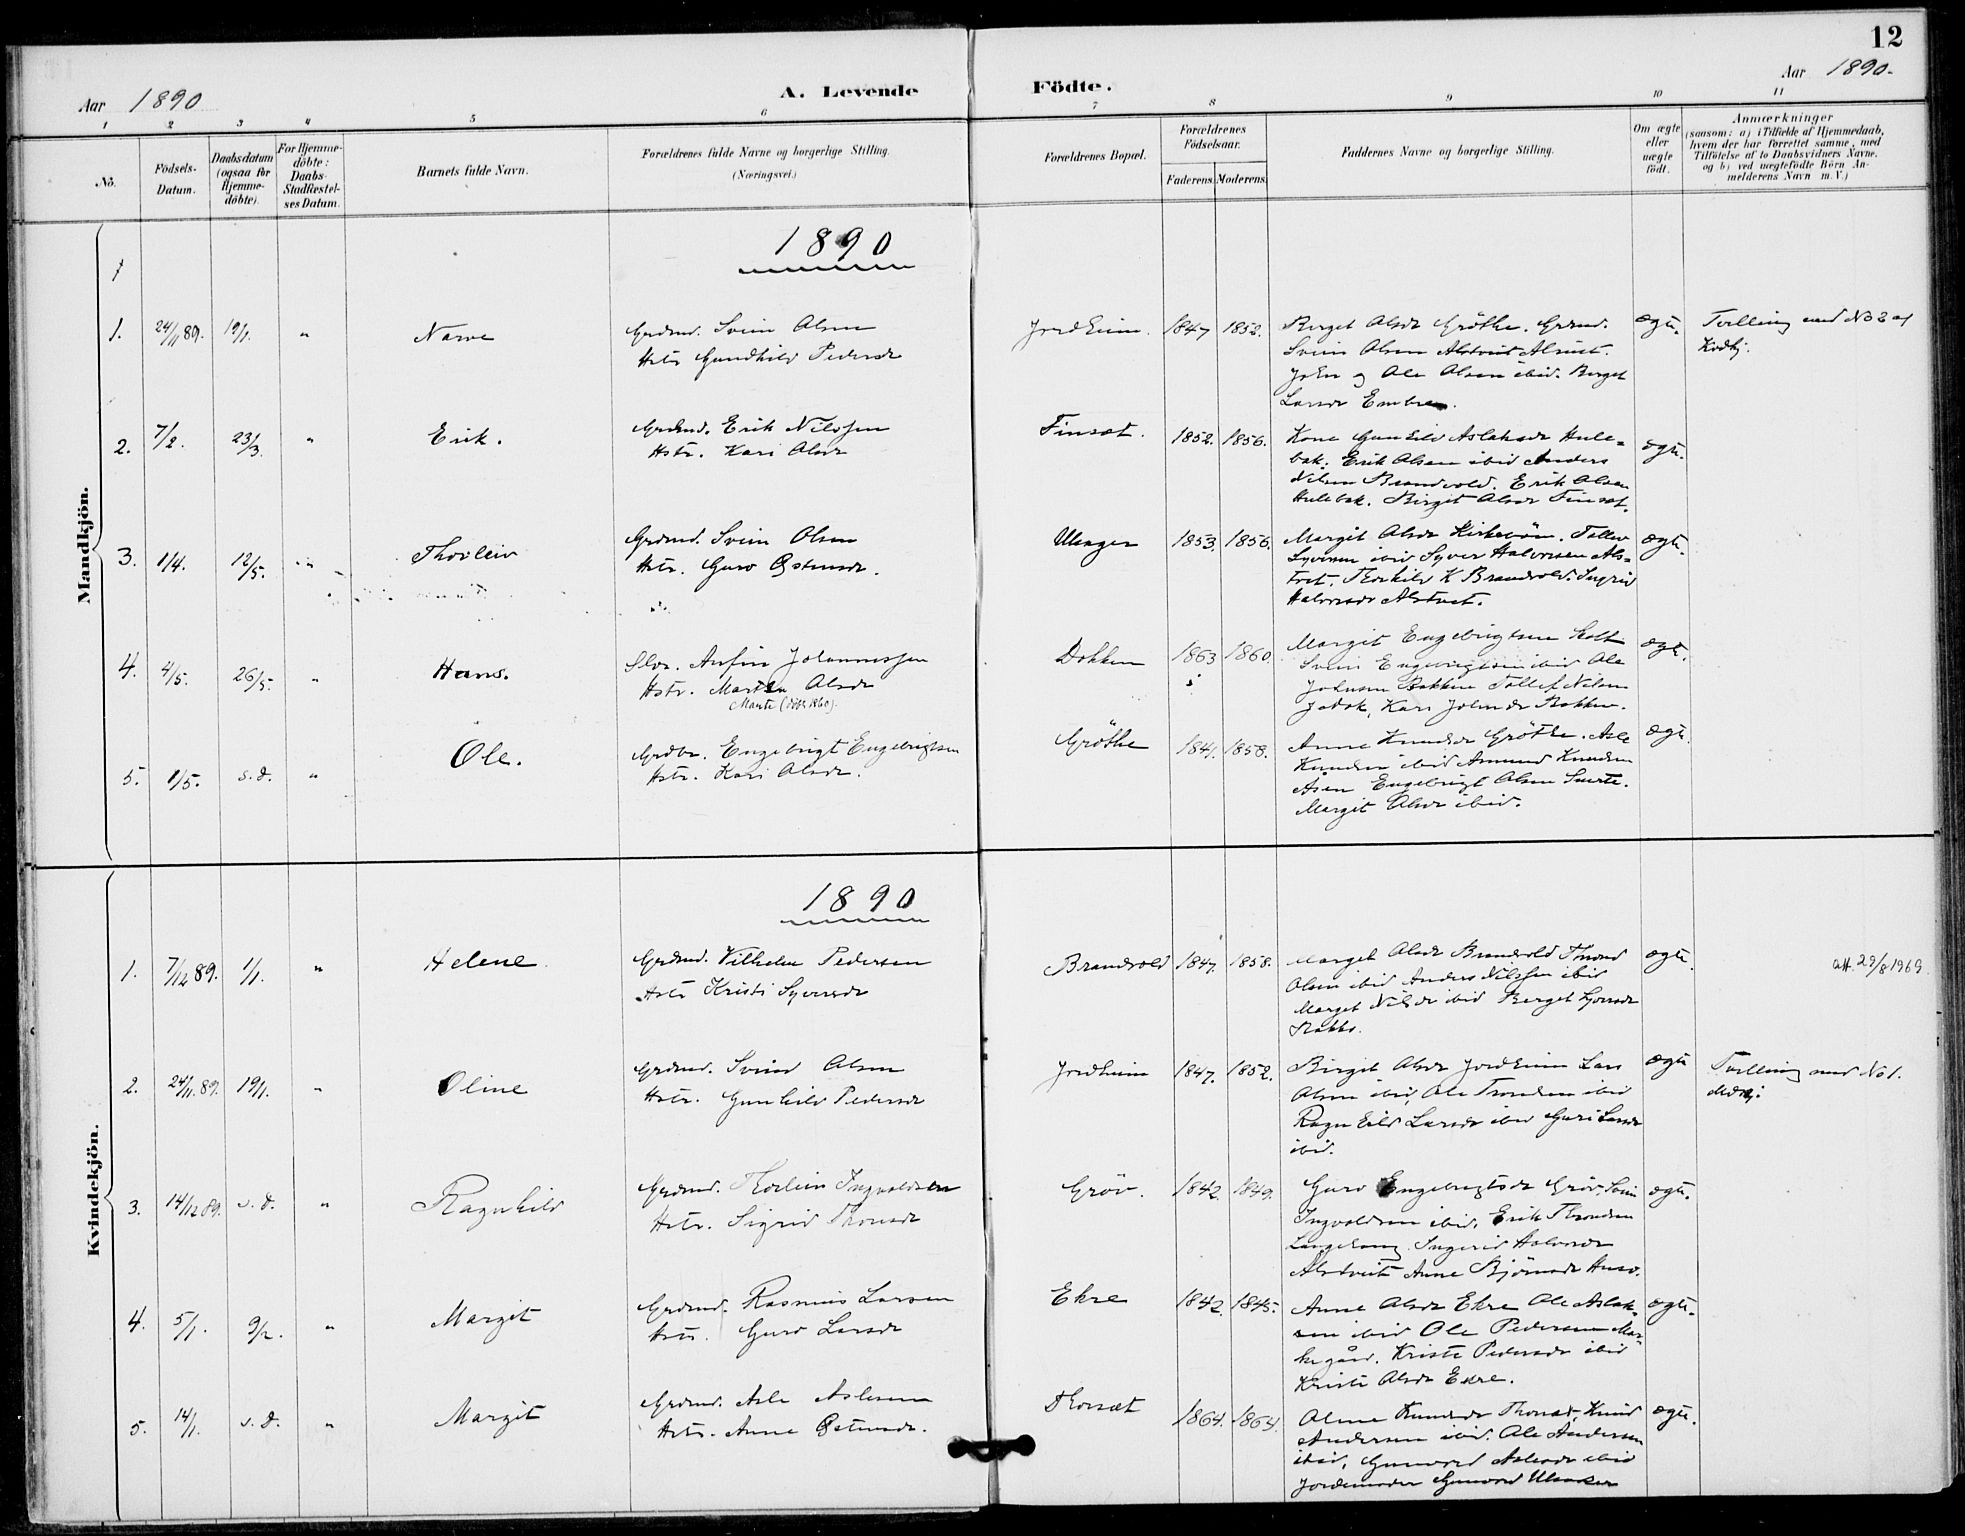 12
Aar 1890
A. Levende
Födte.
Aar 1890.
1 2 3 4 5 6 7 8 9 10 11
No.
Födsels-
Datum.
Daabsdatum
(ogsaa for
Hjemme-
döbte).
For Hjemme-
döbte:
Daabs-
Stadfæstel-
ses Datum.
Barnets fulde Navn.
Forældrenes fulde Navne og borgerlige Stilling.
(Næringsvei.)
Forældrenes Bopæl.
Forældrenes
Födselsaar.
Faderens. Moderens.
Faddernes Navne og borgerlige Stilling.
Om ægte
eller
uægte
født.
Anmærkninger
(saasom: a) i Tilfælde af Hjemmedaab,
hvem der har forrettet samme, med
Tilföielse af to Daabsvidners Navne,
og b) ved uægtefödte Börn An-
melderens Navn m. V.)
Mandkjön.
1890
1. 24/11 89. 19/1. " Narve
Grdmd. Svein Olsen
Hstr Gundhild Pedersdr
Jordheim. 1847 1852.
Birget Olsdr Gröthe. Grdmd.
Svein Olsen
og Ole Olsen ibid. Birget
Larsdr Embre.
ægte.
Tvilling med No 2 af
Kvdkj.
2. 7/2. 23/3. " Erik.
Grdmd. Erik Nilssen
Hstr. Kari Olsdr
Finset. 1852. 1856.
Kone Gunhild Aslaksdr Hule=
bak. Erik Olsen ibid Anders
Nilsen Brandvold. Erik Olsen
Hulebak. Birgit Olsdr Finset.
ægte.
3. 1/4. 12/5. " Thorleiv
Grdmd. Svein Olsen
Hstr. Guro Östensdr.
Ulsager 1853. 1856.
Margit Olsdr Kirkebön. Tollev
Syversen ibid Syver Halvorsen Als=
tvet. Thorhild K Brandvold. Ingrid
Halvorsdr Alstvet.
ægte.
4. 4/5. 26/5. " Hans.
Anfin Johannessen
Hstr. Olsdr
Marte (döbt 1860).
Dokken 1863 1860.
Margit Engebrigtsen Holt
Svein Engebrigtsen ibid Ole
Johnsen Bakken Tollef Nilsen
Kari Johnsdr Bakken.
ægte.
5. 1/5. s.d. " Ole.
Engebrigt Engebrigtsen
Hstr. Kari Olsdr.
Gröthe 1841. 1858.
Anne Knudsdr Gröthe. Asle
Knudsen ibid Amund Knudsen
Åsen Engebrigt Olsen
Margit Olsdr ibid.
ægte.
Kvindekjön.
1890
1. 7/12 89. 1/1. " Helene
Grdmd. Vilhelm Pedersen
Hstr Kristi Syversdr
Brandvold 1847. 1858.
Marget Olsdr Brandvold Thrond
Olsen ibid Anders Nilssen ibid
Marget Nilsdr ibid Berget
ægte.
att. 29/8 1969.
2. 24/11. 89. 19/1. " Oline
Grdmd. Svein Olsen
Hstr. Gunhild Pedersdr
Jordheim 1847. 1852.
Birgit Olsdr Jordheim Lars
Olsen ibid, Ole Trondsen ibid
Ragnhild Larsdr ibid Guri Larsdr
ibid.
ægte
Tvilling med No 1.
Mdkj.
3. 14/12 89. s.d. " Ragnhild
Grdmd. Thorleiv Ingvaldsen
Hstr. Sigrid Thorsdr
Gröv. 1842. 1849.
Guro Engebrigtsdr Gröv, Svein
Ingvaldsen ibid. Erik Throndsen
Langehaug. Ingerid Halvorsdr
Alstveit Anne Björnsdr Huso.
ægte.
4. 5/1. 9/2. " Margit
Grdmd. Rasmus Larsen
Hstr. Guro Larsdr
Ekre 1842. 1845.
Anne Olsdr Ekre Ole Aslak-
sen ibid Ole Pedersen Mar-
kegård. Kristi Pedersdr ibid
Kristi Olsdr Ekre.
ægte.
5. 14/1. s.d. " Margit
Grdmd. Asle Aslesen
Hstr. Anne Östensdr.
Thorset 1864. 1864.
Knudsdr Thorset, Knud
Andersen ibid. Ole Andersen
ibid, Gunvord Aslesdr ibid
Jordemoder Gunvord Ulsaker
ægte.